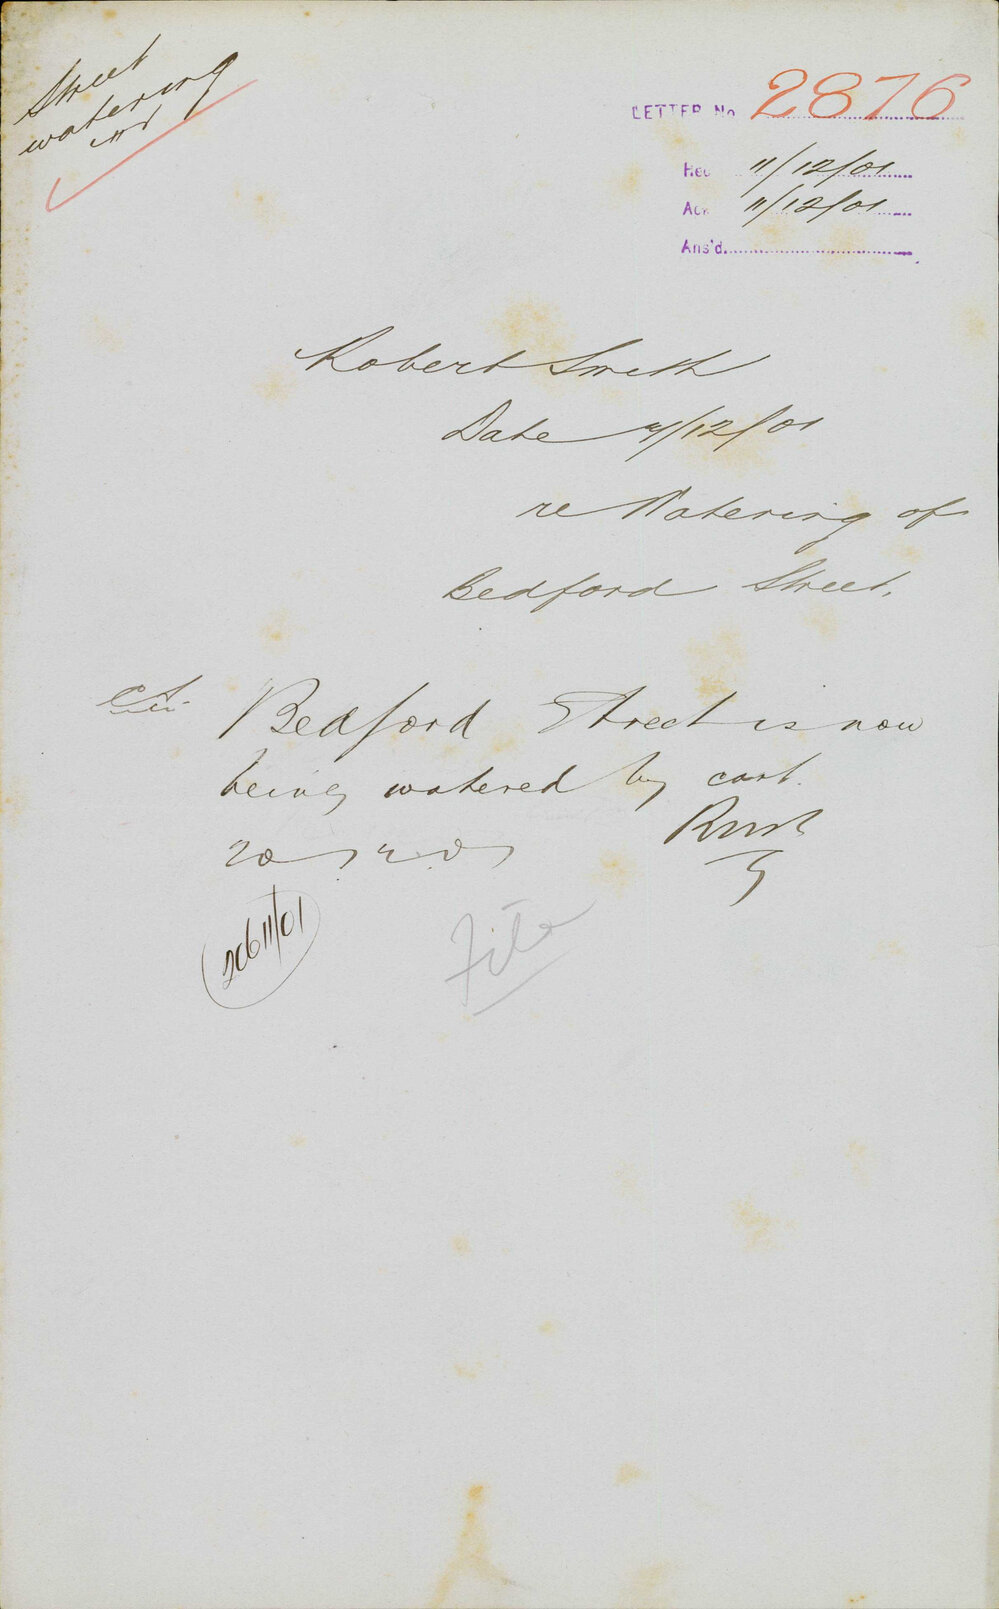 Street
watering
LETTER No 2876
Rec 11/12/01
Ack 11/12/01
Ans'd.
Robert Smith
Date 4/12/01
re Watering of
Bedford Street.
Bedford Street is now
being watered by cart.
2061/01
File